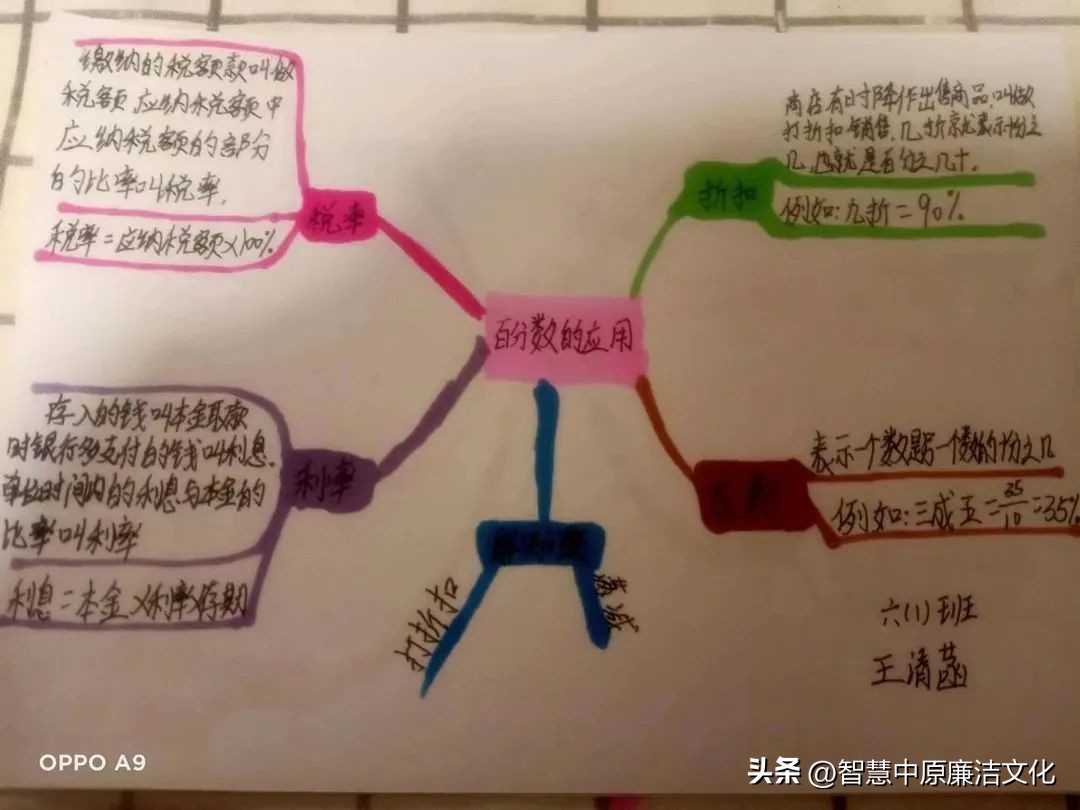 缴纳的税额款叫做
税额,应纳税额中
应纳税额的部分
的比率叫税率.
税率
税率=应纳税额×100%
商店有时降价出售商品,叫做
打折扣销售,几折就表示十分之
几,也就是百分之几十.
折扣
例如:九折=90%
百分数的应用
存入的钱叫本金取款
时银行多支付的钱叫利息.
单位时间内的利息与本金的
比率叫利率
利率
利息=本金×利率×存期
表示一个数是另一个数的十分之几
例如:三成五=35/10=35%
打折扣
满减
六(1)班
王清菡
OPPO A9
头条 @智慧中原廉洁文化